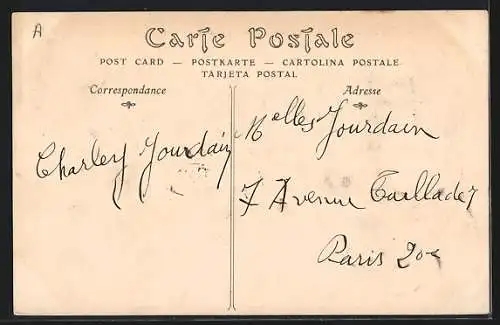 A
Carte Postale
POST CARD — POSTKARTE — CARTOLINA POSTALE
TARJETA POSTAL
Correspondance
Adresse
Charley Jourdain
Melles Jourdain
7 Avenue Taillade 7
Paris 20e